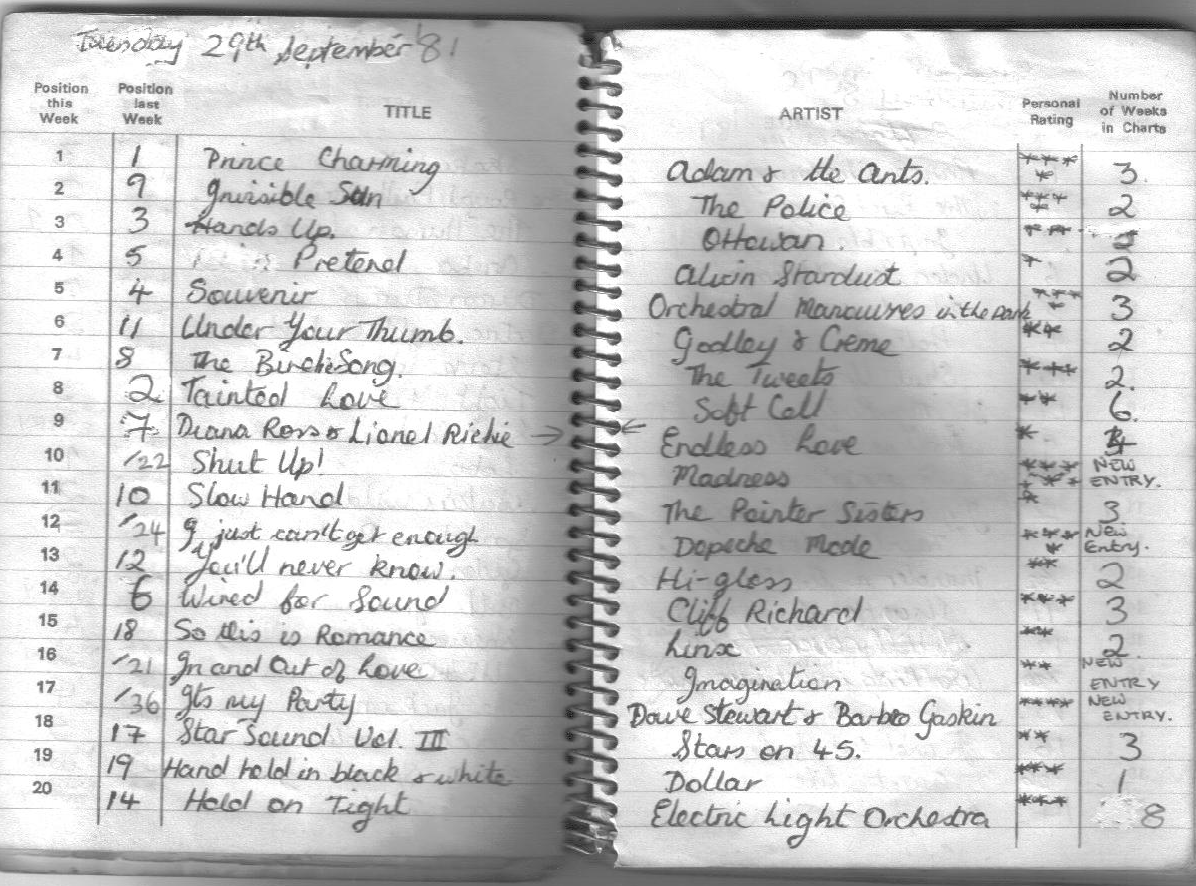 Tuesday 29th September '81
Position this Week Position last Week TITLE ARTIST Personal Rating Number of Weeks in Charts
1 1 Prince Charming Adam & the Ants. **** 3.
2 9 Invisible Sun The Police ***** 2
3 3 Hands Up. Ottowan. ***
4 5 Pretend Alvin Stardust * 2
5 4 Souvenir Orchestral Manouvres in the Dark **** 3
6 11 Under Your Thumb. Godley & Creme ** 2
7 8 The Birdie Song. The Tweets *** 2.
8 2 Tainted Love Soft Cell ** 6.
9 7 Diana Ross & Lionel Richie → ← Endless Love * 4
10 /22 Shut Up! Madness ****** NEW ENTRY.
11 10 Slow Hand The Pointer Sisters * 3
12 /24 I just can't get enough Depeche Mode **** New Entry.
13 12 You'll never know. Hi-gloss ** 2
14 6 Wired for Sound Cliff Richard *** 3
15 18 So this is Romance Linx ** 2.
16 /21 In and Out of Love Imagination ** NEW ENTRY
17 /36 Its my Party Dave Stewart & Barbra Gaskin **** NEW ENTRY.
18 17 Star Sound Vol. III Stars on 45. ** 3
19 19 Hand held in black & white Dollar *** 1
20 14 Hold on Tight Electric Light Orchestra *** 8